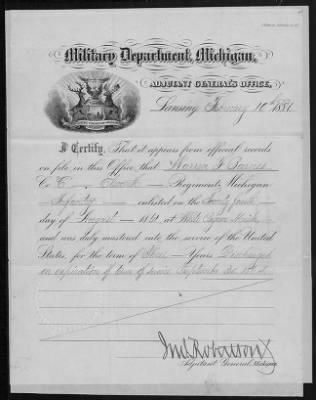 Military Department, Michigan,
ADJUTANT GENERAL'S OFFICE,
Lansing February 10th 1881
I Certify, That it appears from official records
on file in this Office, that Warren F Barnes
Co. E Regiment, Michigan
Infantry enlisted on the
day of August 1861, at White Pigeon Mich
and was duly mustered into the service of the United
States, for the term of Three Years Discharged
on expiration of term of service September
Jno Robertson
Adjutant General, Michigan